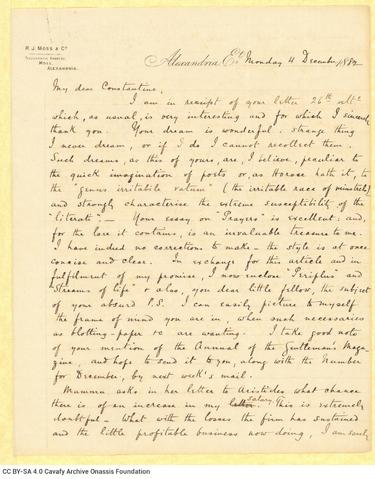 R. J. MOSS & Co
TELEGRAPHIC ADDRESS,
MOSS,
ALEXANDRIA.
Alexandria Et. Monday 4 December 1882
My dear Constantine,
I am in receipt of your letter 26th ulto
which, as usual, is very interesting and for which I sincerely
thank you. Your dream is wonderful. Strange thing
I never dream, or if I do I cannot recollect them.
Such dreams, as this of yours, are, I believe, peculiar to
the quick imagination of poets or, as Horace hath it, to
the "genus irritabile vatum" (the irritable race of minstrels)
and strongly characterise the extreme susceptibility of the
"literati". — Your essay on "Prayers" is excellent: and,
for the lore it contains, is an invaluable treasure to me.
I have indeed no corrections to make — the style is at once
concise and clear. In exchange for this article and in
fulfilment of my promise, I now enclose "Periplus" and
"Streams of life" & also, you dear little fellow, the subject
of your absurd P.S. I can easily picture to myself
the frame of mind you are in, when such necessaries
as blotting-paper &c are wanting. I take good note
of your mention of the Annual of the Gentleman's Maga-
zine, and hope to send it to you, along with the Number
for December, by next week's mail.
Mamma asks in her letter to Aristides what chance
there is of an increase in my salary. This is extremely
doubtful — What with the losses the firm has sustained
and the little profitable business now doing, I am surely
CC BY-SA 4.0 Cavafy Archive Onassis Foundation